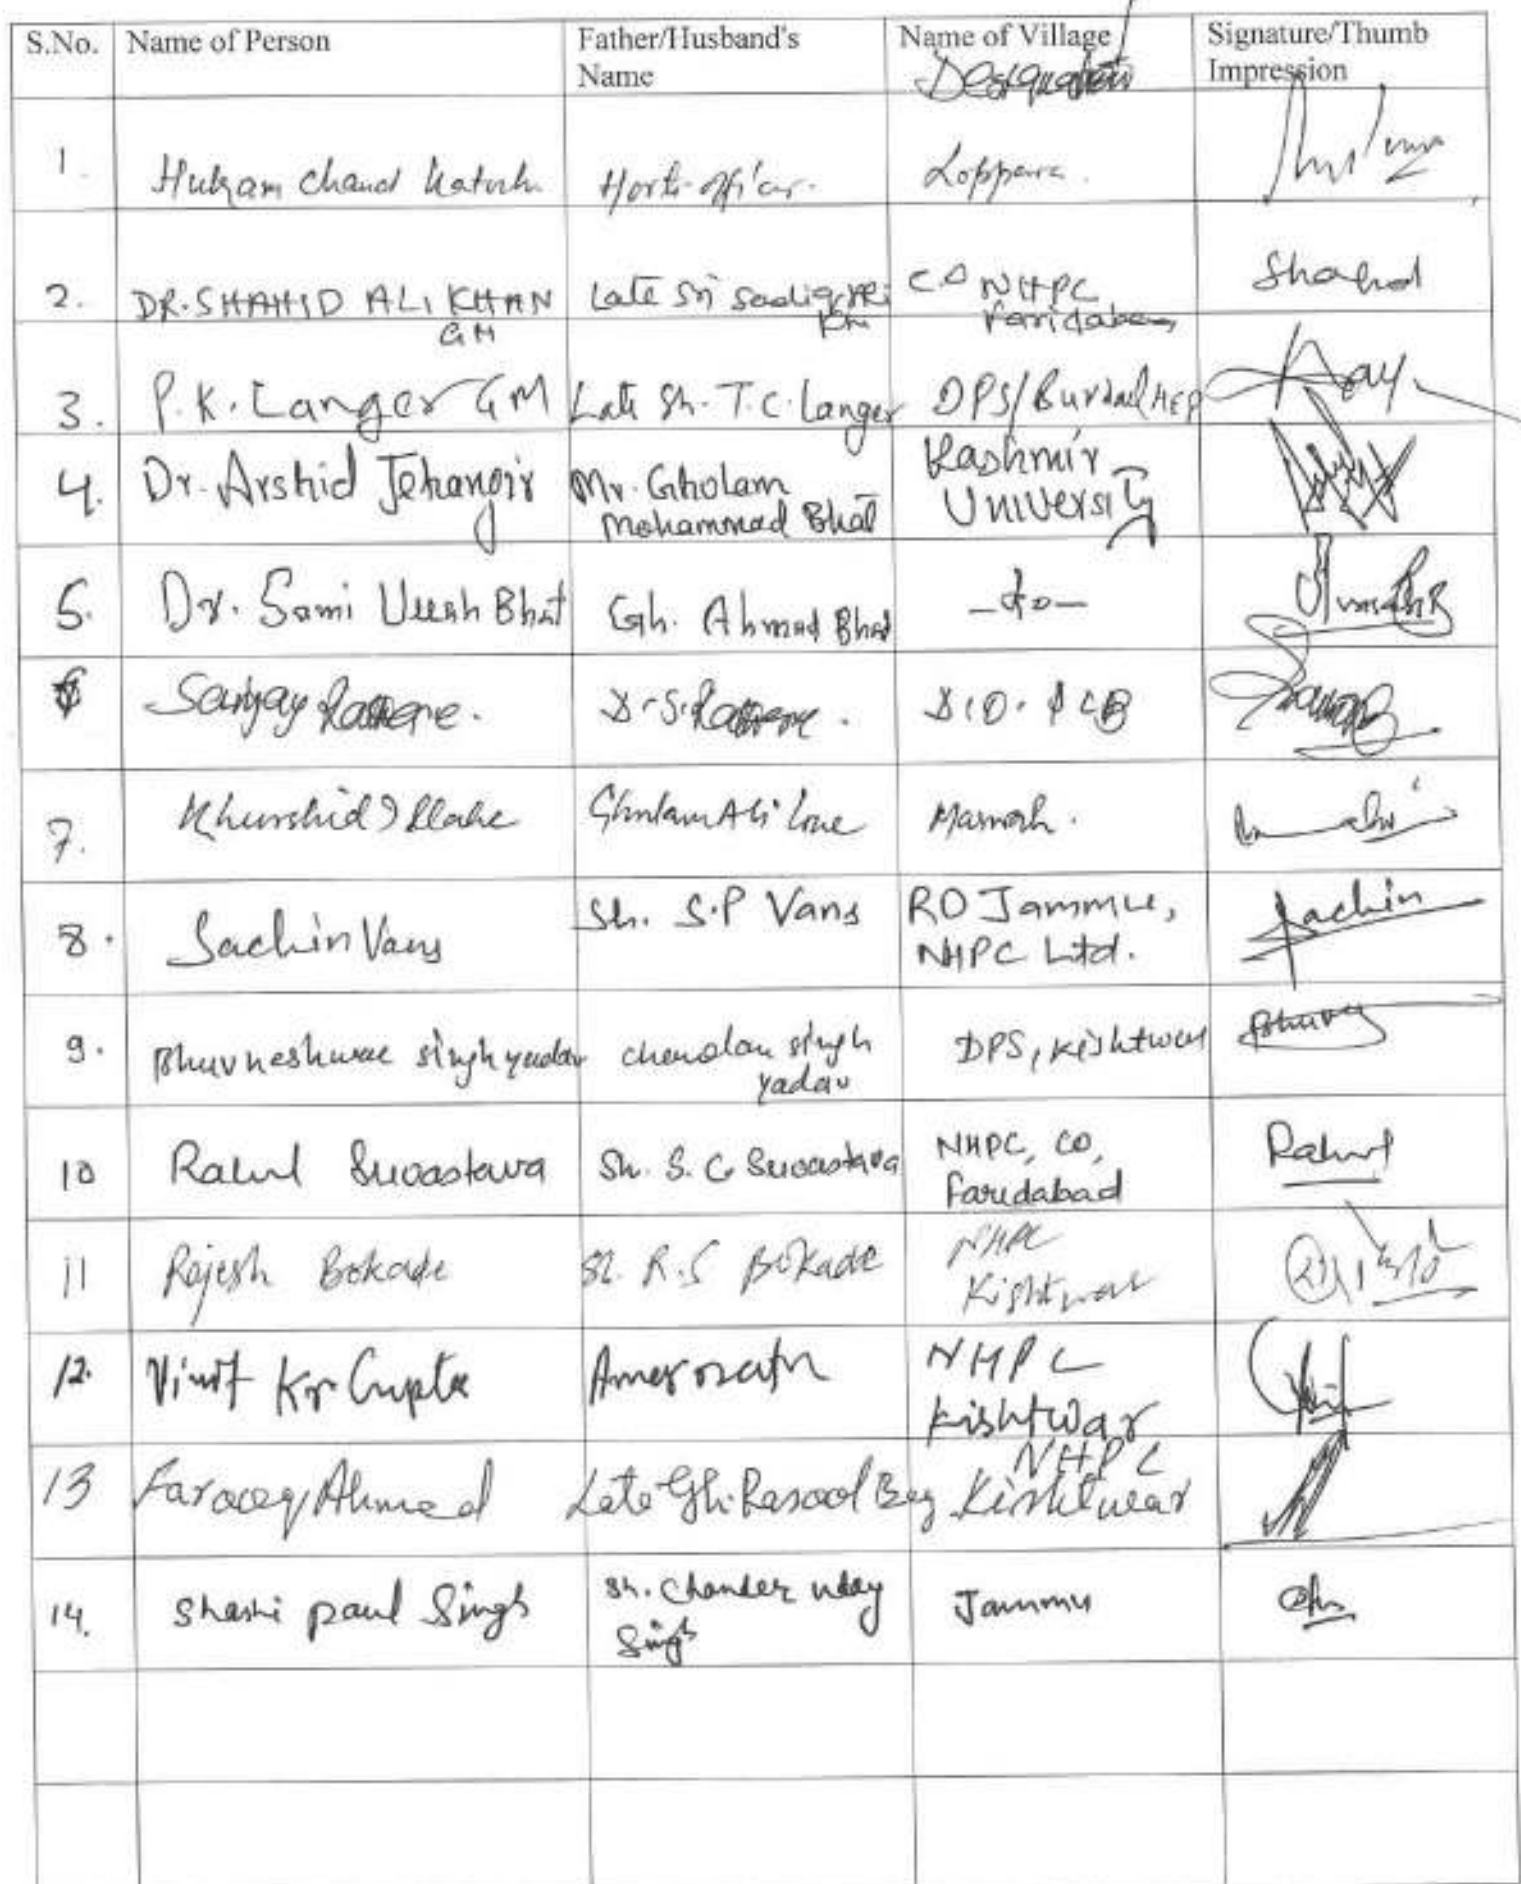 S.No. Name of Person Father/Husband's Name Name of Village / Designation Signature/Thumb Impression
1. Hukam Chand Katoch Horti-officer. Loppara.
2. DR. SHAHID ALI KHAN GM Late Sri Sadiq Ali Khan CO NHPC Faridabad Shahid
3. P.K. Langer GM Late Sh. T.C. Langer DPS/Bursar HEP
4. Dr. Arshid Jehangir Mr. Gholam Mohammad Bhat Kashmir University
5. Dr. Sami Ullah Bhat Gh. Ahmad Bhat -do-
6 Sanjay
7. Ghulam Ali Lone
8. Sachin Vans Sh. S.P Vans RO Jammu, NHPC Ltd. Sachin
9. Bhuvneshwar singh yadav chandan singh yadav DPS, Kishtwar
10 Rahul Srivastava Sh. S. C Srivastava NHPC, CO, Faridabad Rahul
11 Rajesh Bokade Sh. R.S Bokade NHPC Kishtwar
12. Vinit Kr Gupta Amarnath NHPC Kishtwar
13 Farooq Ahmed Late Gh. Rasool Beg NHPC Kishtwar
14. Shashi paul Singh Sh. Chander uday Singh Jammu